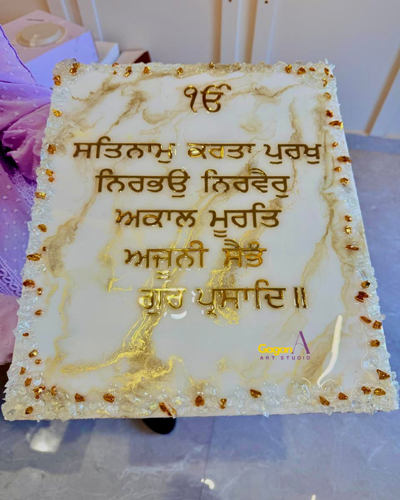 ੴ
ਸਤਿਨਾਮੁ ਕਰਤਾ ਪੁਰਖੁ
ਨਿਰਭਉ ਨਿਰਵੈਰੁ
ਅਕਾਲ ਮੂਰਤਿ
ਅਜੂਨੀ ਸੈਭੰ
ਗੁਰ ਪ੍ਰਸਾਦਿ ॥
ART STUDIO